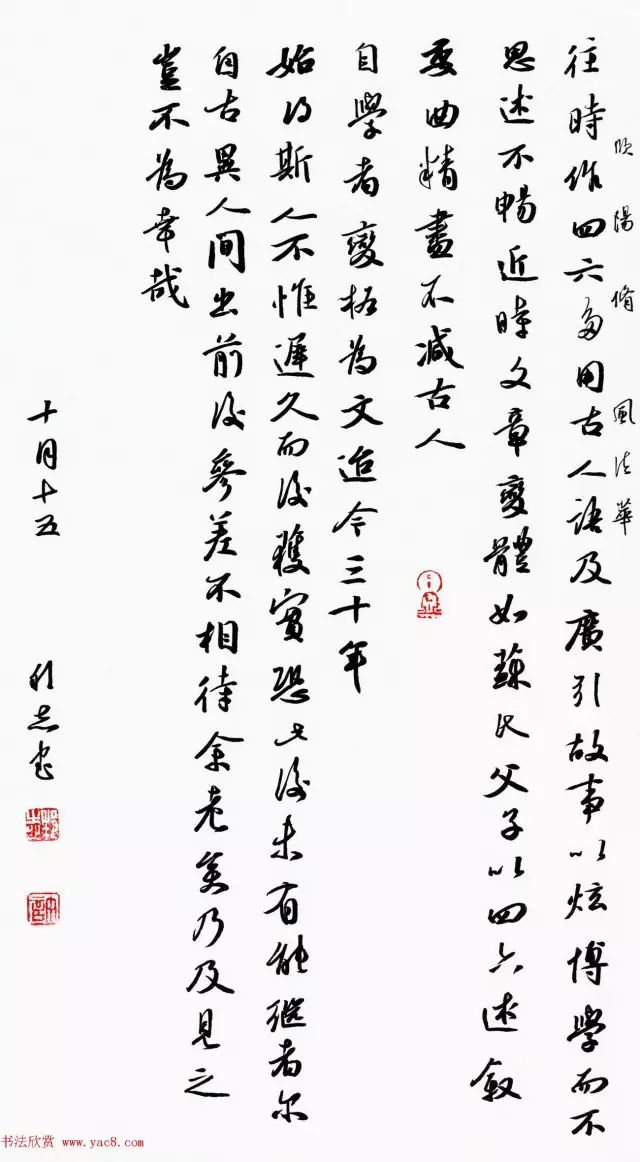 欧陽脩 風法華
往時作四六多用古人語及廣引故事以炫博學而不
思述不暢近時文章變體如蘇氏父子以四六述敘
委曲精盡不減古人
自學者變格為文迨今三十年
始得斯人不惟遲久而後獲實恐此後未有能繼者尔
自古異人間出前後參差不相待余老矣乃及見之
豈不為幸哉
十月十五
书法欣赏 www.yac8.com